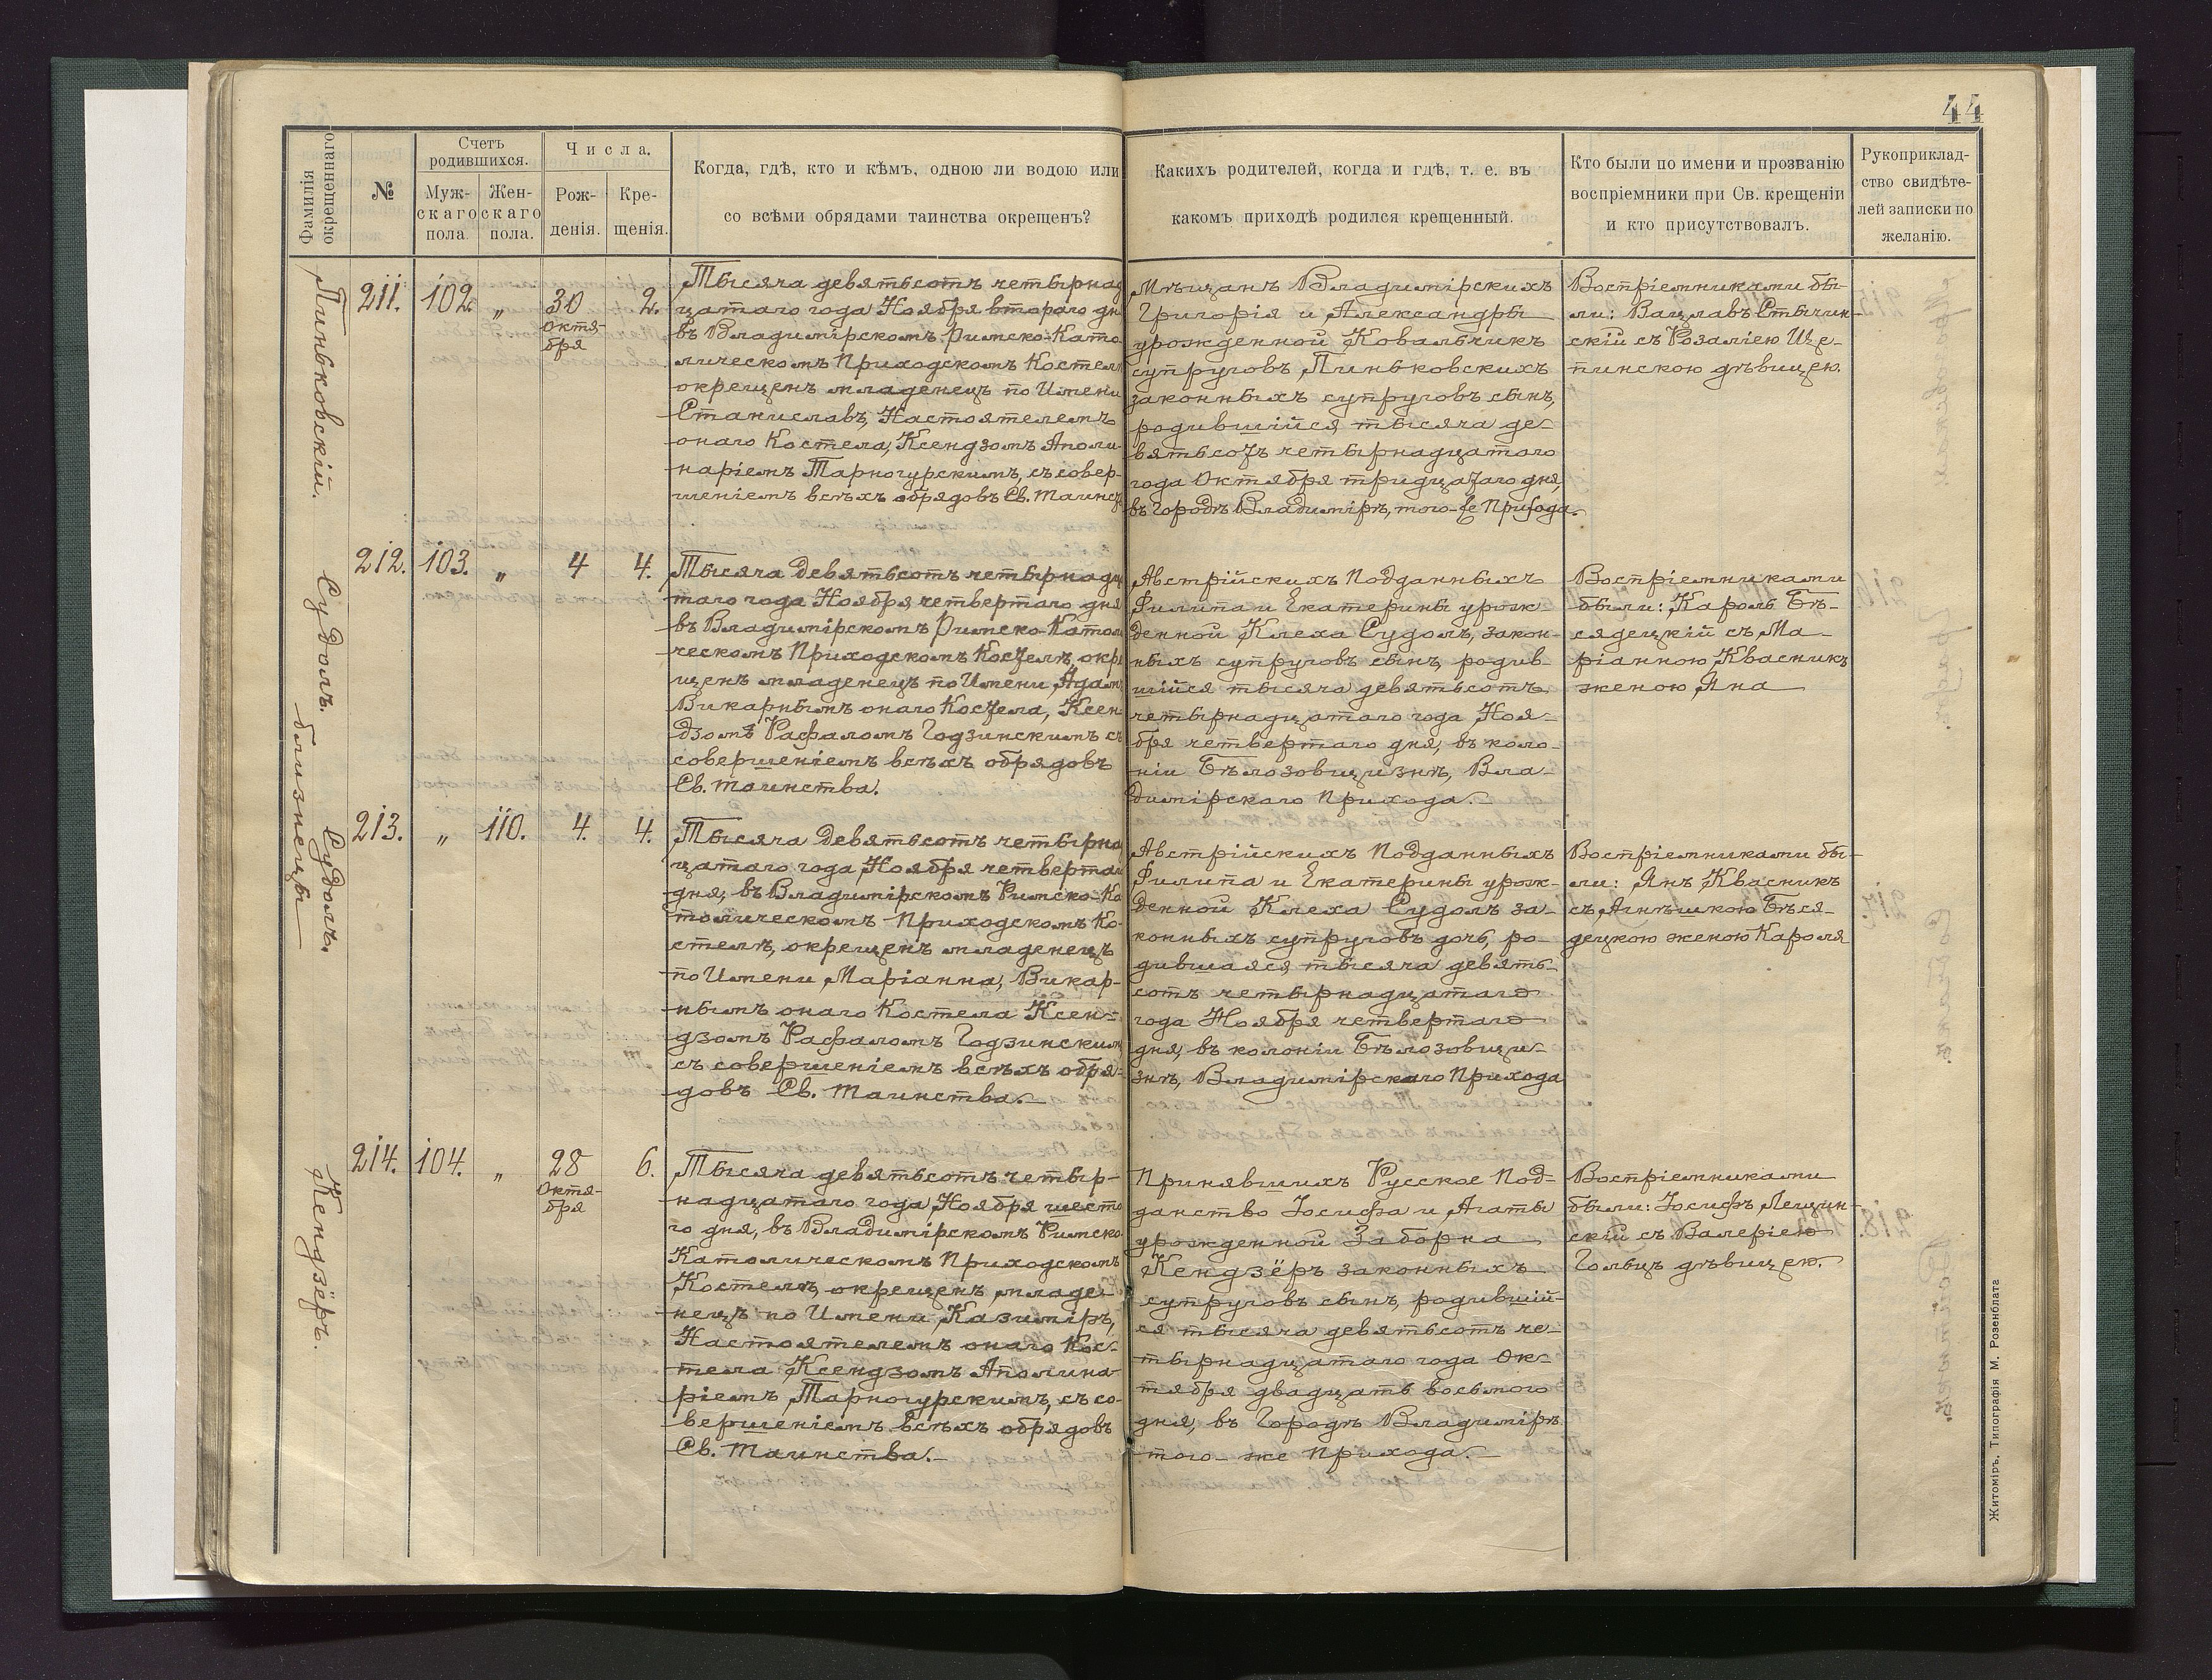 44
Фамилія окрещеннаго
№
Счетъ родившихся.
Муж-
скаго
пола.
Жен-
скаго
пола.
Числа.
Рож-
денія.
Кре-
щенія.
Когда, гдѣ, кто и кѣмъ, одною ли водою или
со всѣми обрядами таинства окрещенъ?
Какихъ родителей, когда и гдѣ, т. е. въ
какомъ приходѣ родился крещенный.
Кто были по имени и прозванію
воспріемники при Св. крещеніи
и кто присутствовалъ.
Рукоприклад-
ство свидѣте-
лей записки по
желанію.
Пиньковскій.
211.
102.
„
30
Октя-
бря
2.
Тысяча девятьсотъ четырнад
цатаго года Ноября втораго дня
въ Владимірскомъ Римско-Като
лическомъ Приходскомъ Костелѣ
окрещенъ младенецъ по Имени
Станиславъ, Настоятелемъ
онаго Костела, Ксендзомъ Аполи-
наріемъ Тарногурскимъ, съ совер-
шеніемъ всѣхъ обрядовъ Св. Таинст
Мѣщанъ Владимірскихъ
Григорія и Александры
урожденной Ковальчикъ
супруговъ Пиньковскихъ
законныхъ супруговъ сынъ,
родившійся тысяча де-
вятьсотъ четырнадцатаго
года Октября тридцатаго дня,
въ Городѣ Владимірѣ, того-же Прихода.
Воспріемниками бы-
ли: Вацлавъ Стычин-
скій съ Розаліею Ще-
пинскою дѣвицею.
Судолъ.
близнецы
212.
103.
„
4
4.
Тысяча девятьсотъ четырнадца
таго года Ноября четвертаго дня
въ Владимірскомъ Римско-Катол
ческомъ Приходскомъ Костелѣ, окре
щенъ младенецъ по Имени Адамъ
Викарнымъ онаго Костела, Ксен
дзомъ Рафаломъ Годзинскимъ съ
совершеніемъ всѣхъ обрядовъ
Св. Таинства.
Австрійскихъ Подданныхъ
Филипа и Екатерины урож-
денной Клеха Судолъ, закон-
ныхъ супруговъ сынъ, родив-
шійся тысяча девятьсотъ
четырнадцатаго года Ноя-
бря четвертаго дня, въ коло-
ніи Бѣлозовщизнѣ, Вла-
димірскаго Прихода.
Воспріемниками
были: Кароль Бѣ-
сядецкій съ Ма-
ріанною Квасникъ
женою Яна
Судолъ.
213.
„
110.
4.
4.
Тысяча девятьсотъ четырна
цатаго года Ноября четвертаго
дня, въ Владимірскомъ Римско-Ка
толическомъ Приходскомъ Ко-
стелѣ, окрещенъ младенецъ
по Имени Маріанна, Викар-
нымъ онаго Костела Ксен-
дзомъ Рафаломъ Годзинскимъ
съ совершеніемъ всѣхъ обря-
довъ Св. Таинства.
Австрійскихъ Подданныхъ
Филипа и Екатерины урож-
денной Клеха Судолъ за-
конныхъ супруговъ дочь, ро-
дившаяся тысяча девять-
сотъ четырнадцатаго
года Ноября четвертаго
дня, въ колоніи Бѣлозовщи-
знѣ, Владимірскаго Прихода
Воспріемниками бы-
ли: Янъ Квасникъ
съ Агнѣшкою Бѣся-
децкою женою Кароля
Кендзёръ.
214.
104.
„
28
Октя-
бря
6.
Тысяча девятьсотъ четыр-
надцатаго года, Ноября шеста
го дня, въ Владимірскомъ Римско-
Католическомъ Приходскомъ
Костелѣ, окрещенъ младе-
нецъ по Имени Казиміръ,
Настоятелемъ онаго Кос-
тела Ксендзомъ Аполина-
ріемъ Тарногурскимъ, съ со-
вершеніемъ всѣхъ обрядовъ
Св. Таинства.
Принявшихъ Русское Под-
данство Іосифа и Агаты
урожденной Заборна
Кендзёръ законныхъ
супруговъ сынъ, родившій-
ся тысяча девятьсотъ че-
тырнадцатаго года Ок-
тября двадцать восьмого
дня, въ Городѣ Владимірѣ
того-же Прихода.
Воспріемниками
были: Іосифъ Лещин-
скій съ Валеріею
Гольцъ дѣвицею.
Житоміръ. Типографія М. Розенблата